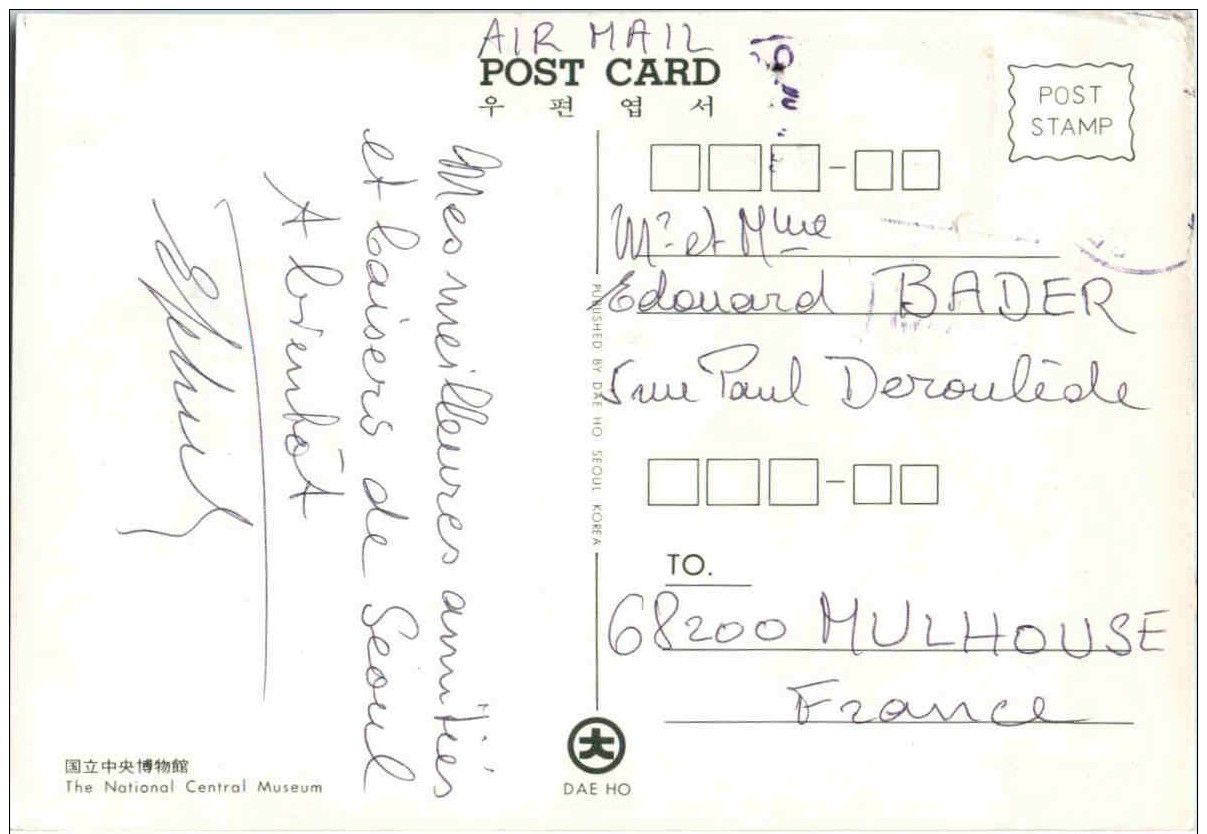 AIR MAIL
POST CARD
우 편 엽 서
POST
STAMP
Mes meilleures amitiés
et baisers de Séoul
A bientôt
Mr et Mme
Edouard BADER
5 rue Paul Deroulède
TO.
68200 MULHOUSE
France
PUBLISHED BY DAE HO SEOUL KOREA
大
DAE HO
国立中央博物館
The National Central Museum